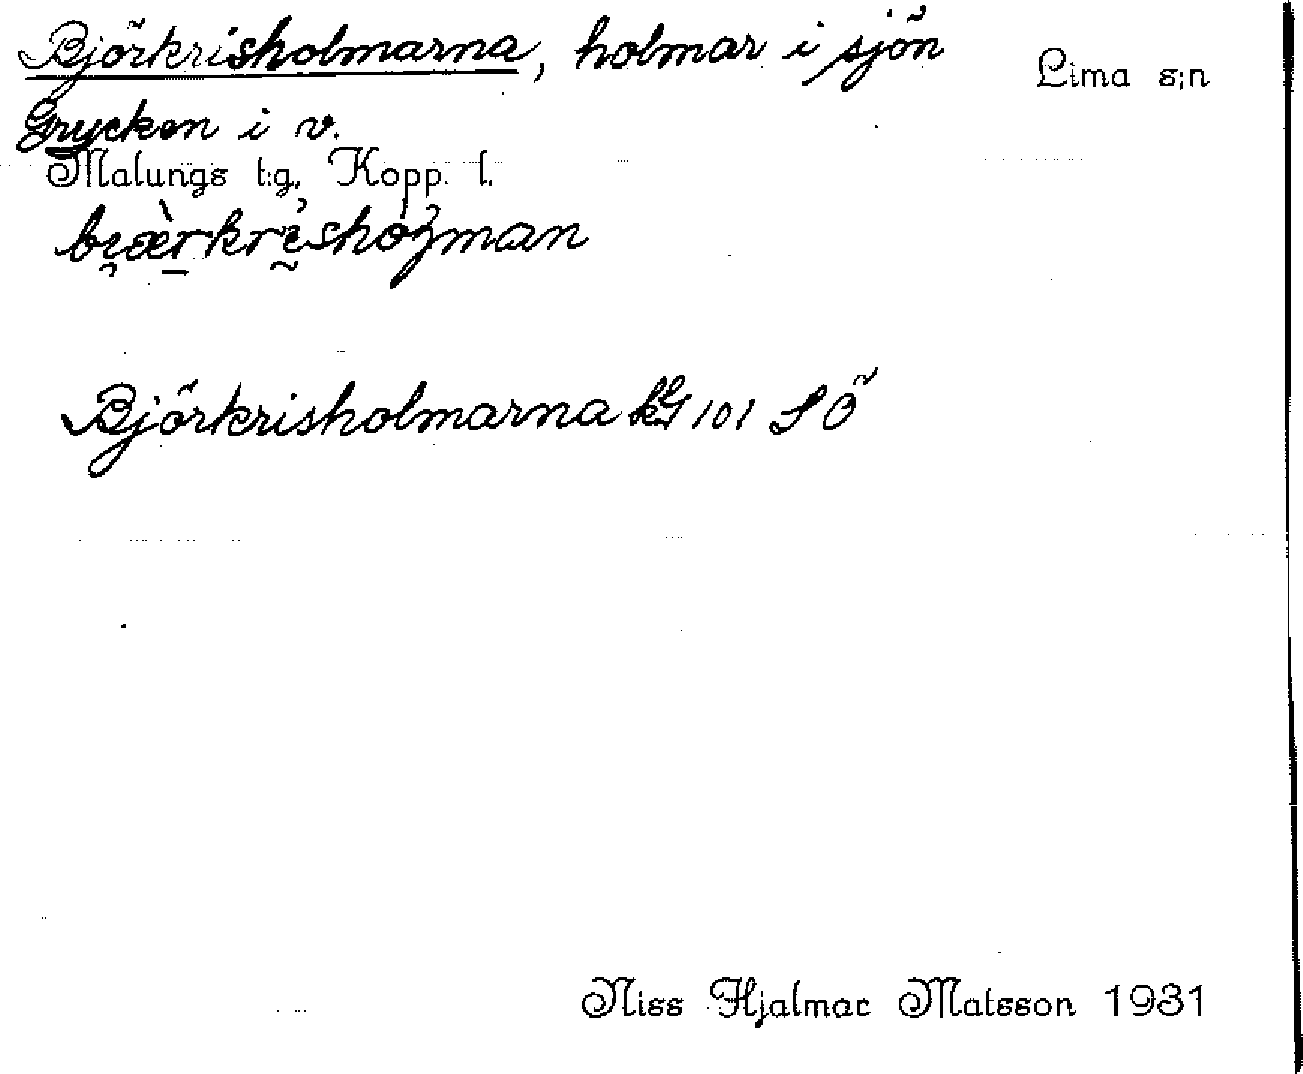 Björkrisholmarna, holmar i sjön
Lima s:n
Grycken i v.
Malungs t:g, Kopp. l.
Björkrisholmarna kbl 101 SÖ
Niss Hjalmar Matsson 1931